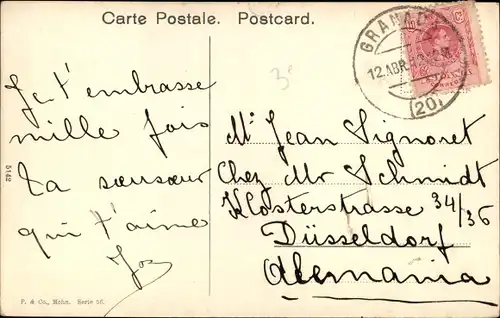 Carte Postale. Postcard.
GRANADA
12.ABR
(20)
Je t'embrasse
mille fois
ta soeusoeur
qui t'aime
Mr Jean Signoret
Chez Mr Schmidt
Klosterstrasse 34/36
Düsseldorf
Alemania
5142
P. & Co., Hohn. Serie 56.